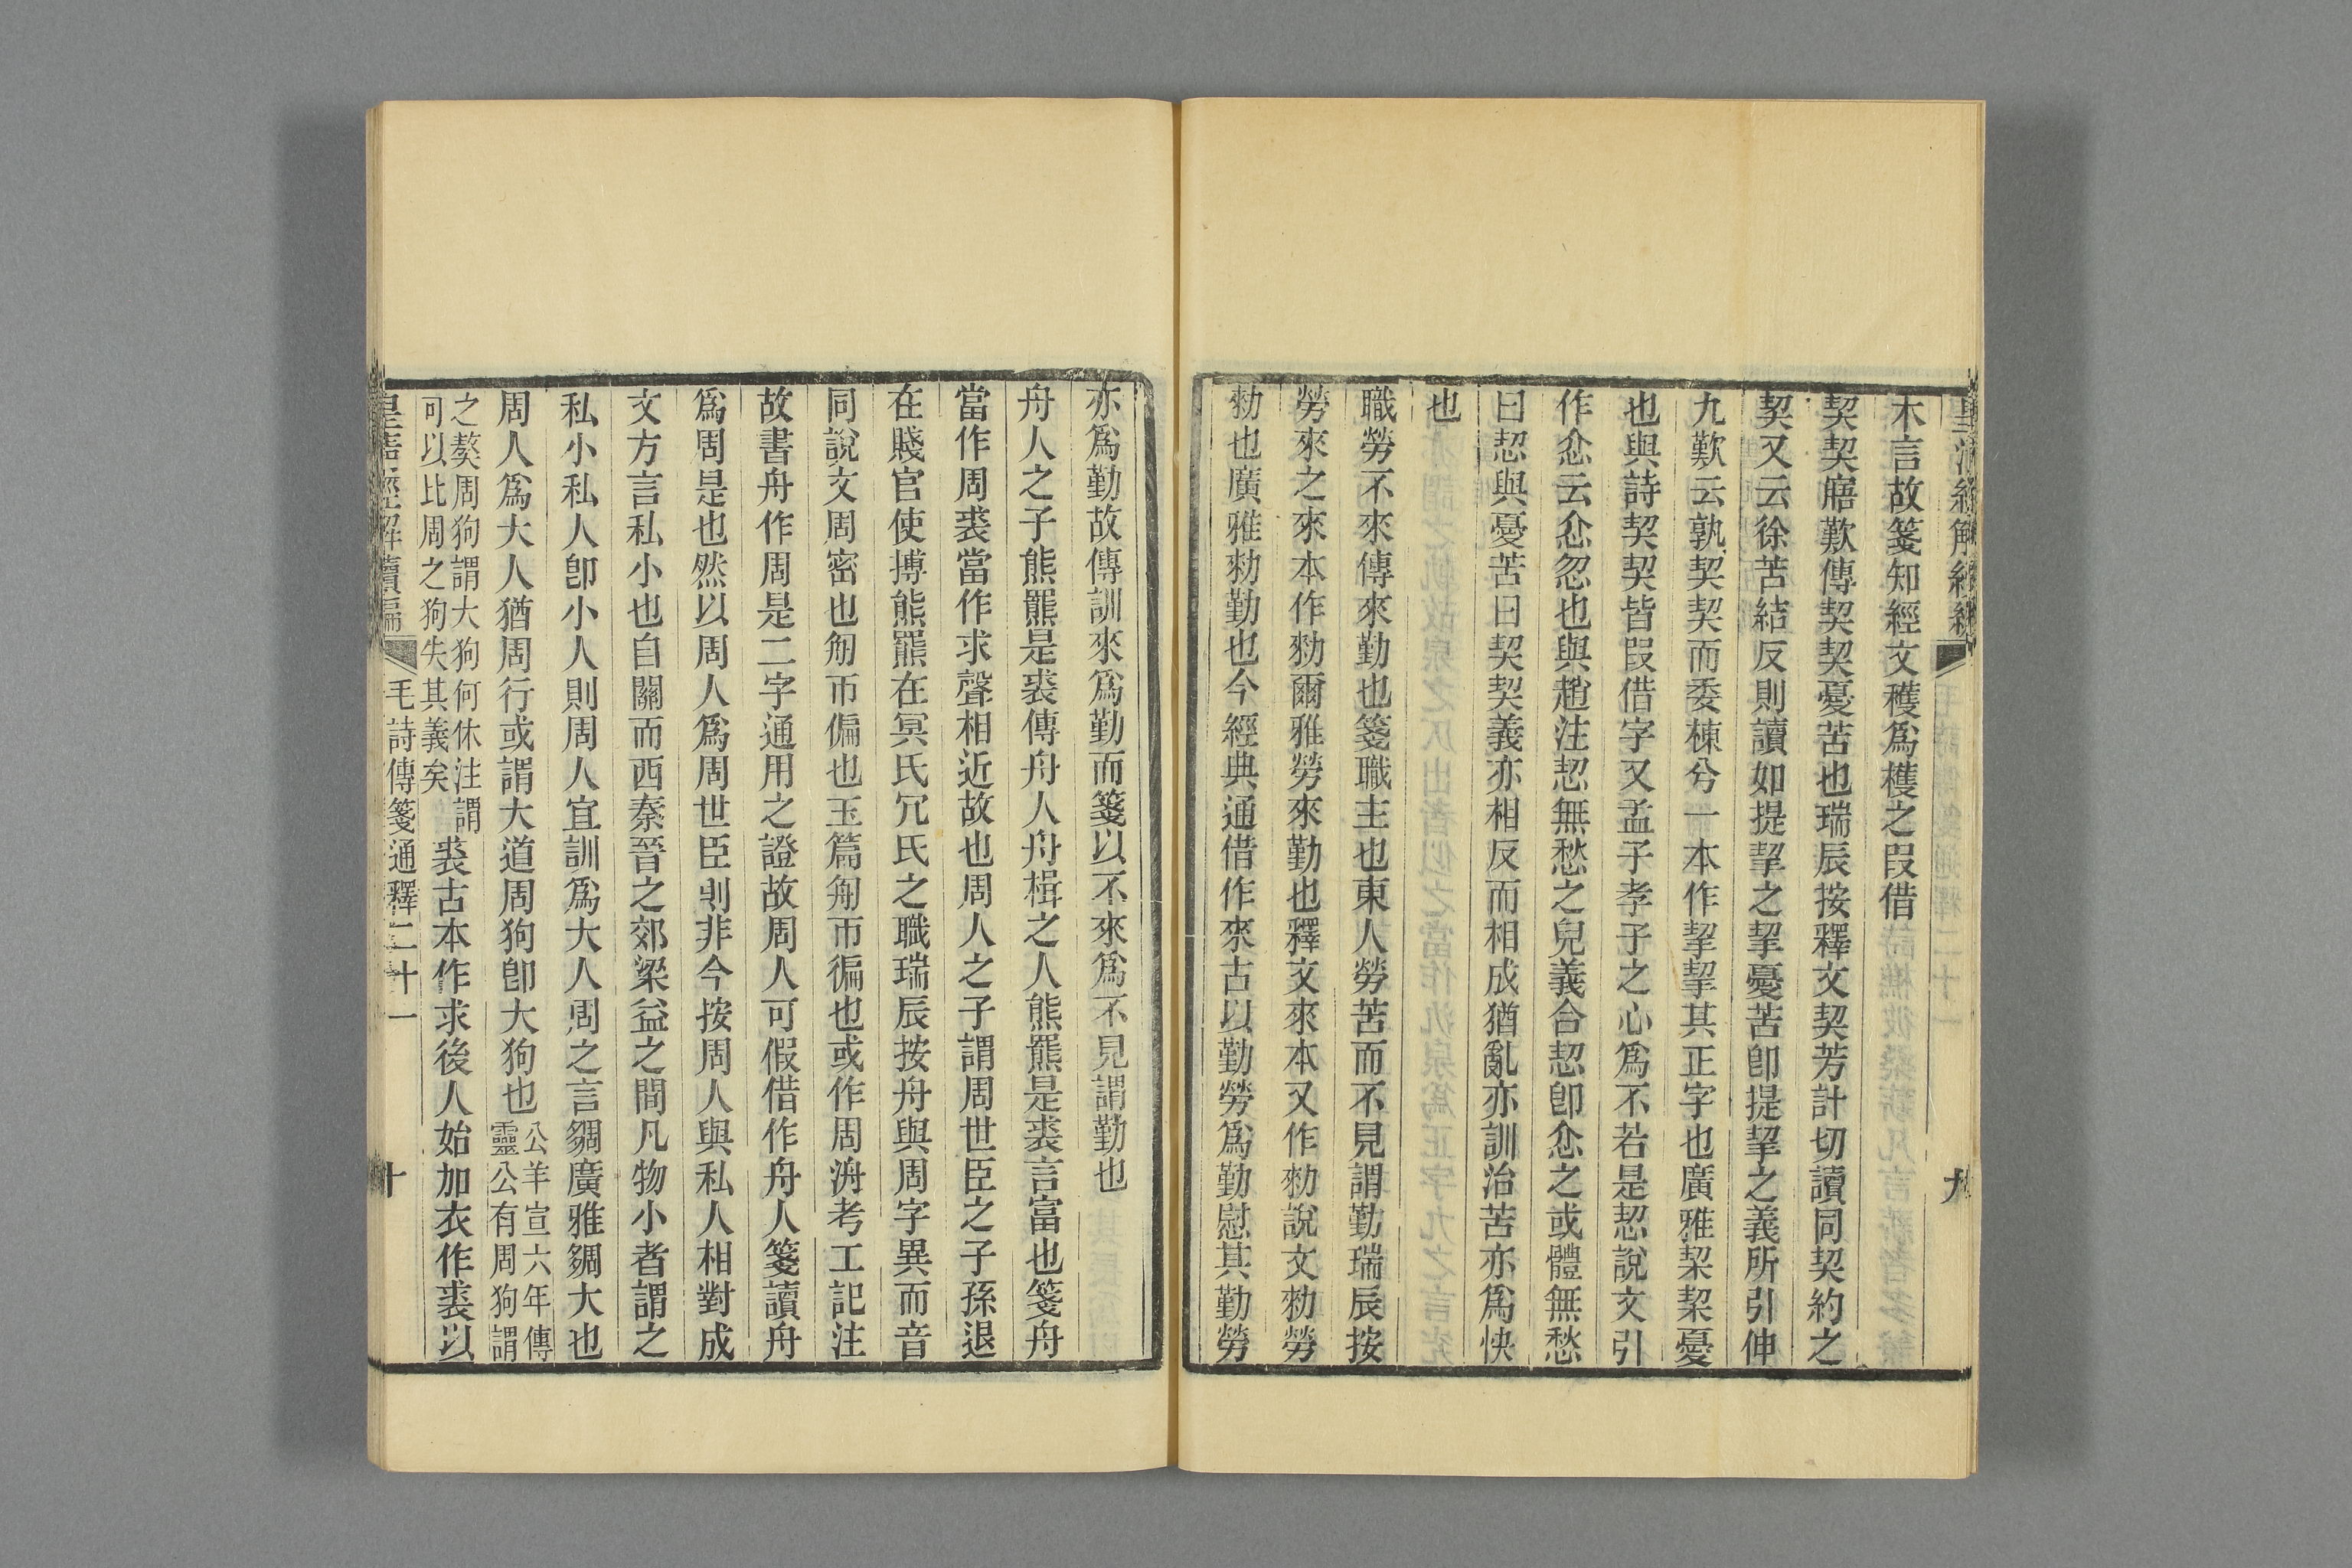 皇清經解續編
九
木言故箋知經文穫爲檴之叚借
契契寤歎傳契契憂苦也瑞辰按釋文契芳計切讀同契約之
契又云徐苦結反則讀如提挈之挈憂苦卽提挈之義所引伸
九歎云孰契契而委棟兮一本作挈挈其正字也廣雅栔栔憂
也與詩契契皆叚借字又孟子孝子之心爲不若是恝說文引
作忿云忿忽也與趙注恝無愁之皃義合恝卽忿之或體無愁
曰恝與憂苦曰契契義亦相反而相成猶亂亦訓治苦亦爲快
也
職勞不來傳來勤也箋職主也東人勞苦而不見謂勤瑞辰按
勞來之來本作勑爾雅勞來勤也釋文來本又作勑說文勑勞
勑也廣雅勑勤也今經典通借作來古以勤勞爲勤慰其勤勞
亦爲勤故傳訓來爲勤而箋以不來爲不見謂勤也
舟人之子熊羆是裘傳舟人舟楫之人熊羆是裘言富也箋舟
當作周裘當作求聲相近故也周人之子謂周世臣之子孫退
在賤官使搏熊羆在冥氏冗氏之職瑞辰按舟與周字異而音
同說文周密也匊帀偏也玉篇匊帀徧也或作周洀考工記注
故書舟作周是二字通用之證故周人可假借作舟人箋讀舟
爲周是也然以周人爲周世臣則非今按周人與私人相對成
文方言私小也自關而西秦晉之郊梁益之間凡物小者謂之
私小私人卽小人則周人宜訓爲大人周之言奝廣雅奝大也
周人爲大人猶周行或謂大道周狗卽大狗也公羊宣六年傳靈公有周狗謂
之獒周狗謂大狗何休注謂可以比周之狗失其義矣裘古本作求後人始加衣作裘以
皇清經解續編
毛詩傳箋通釋二十一
十